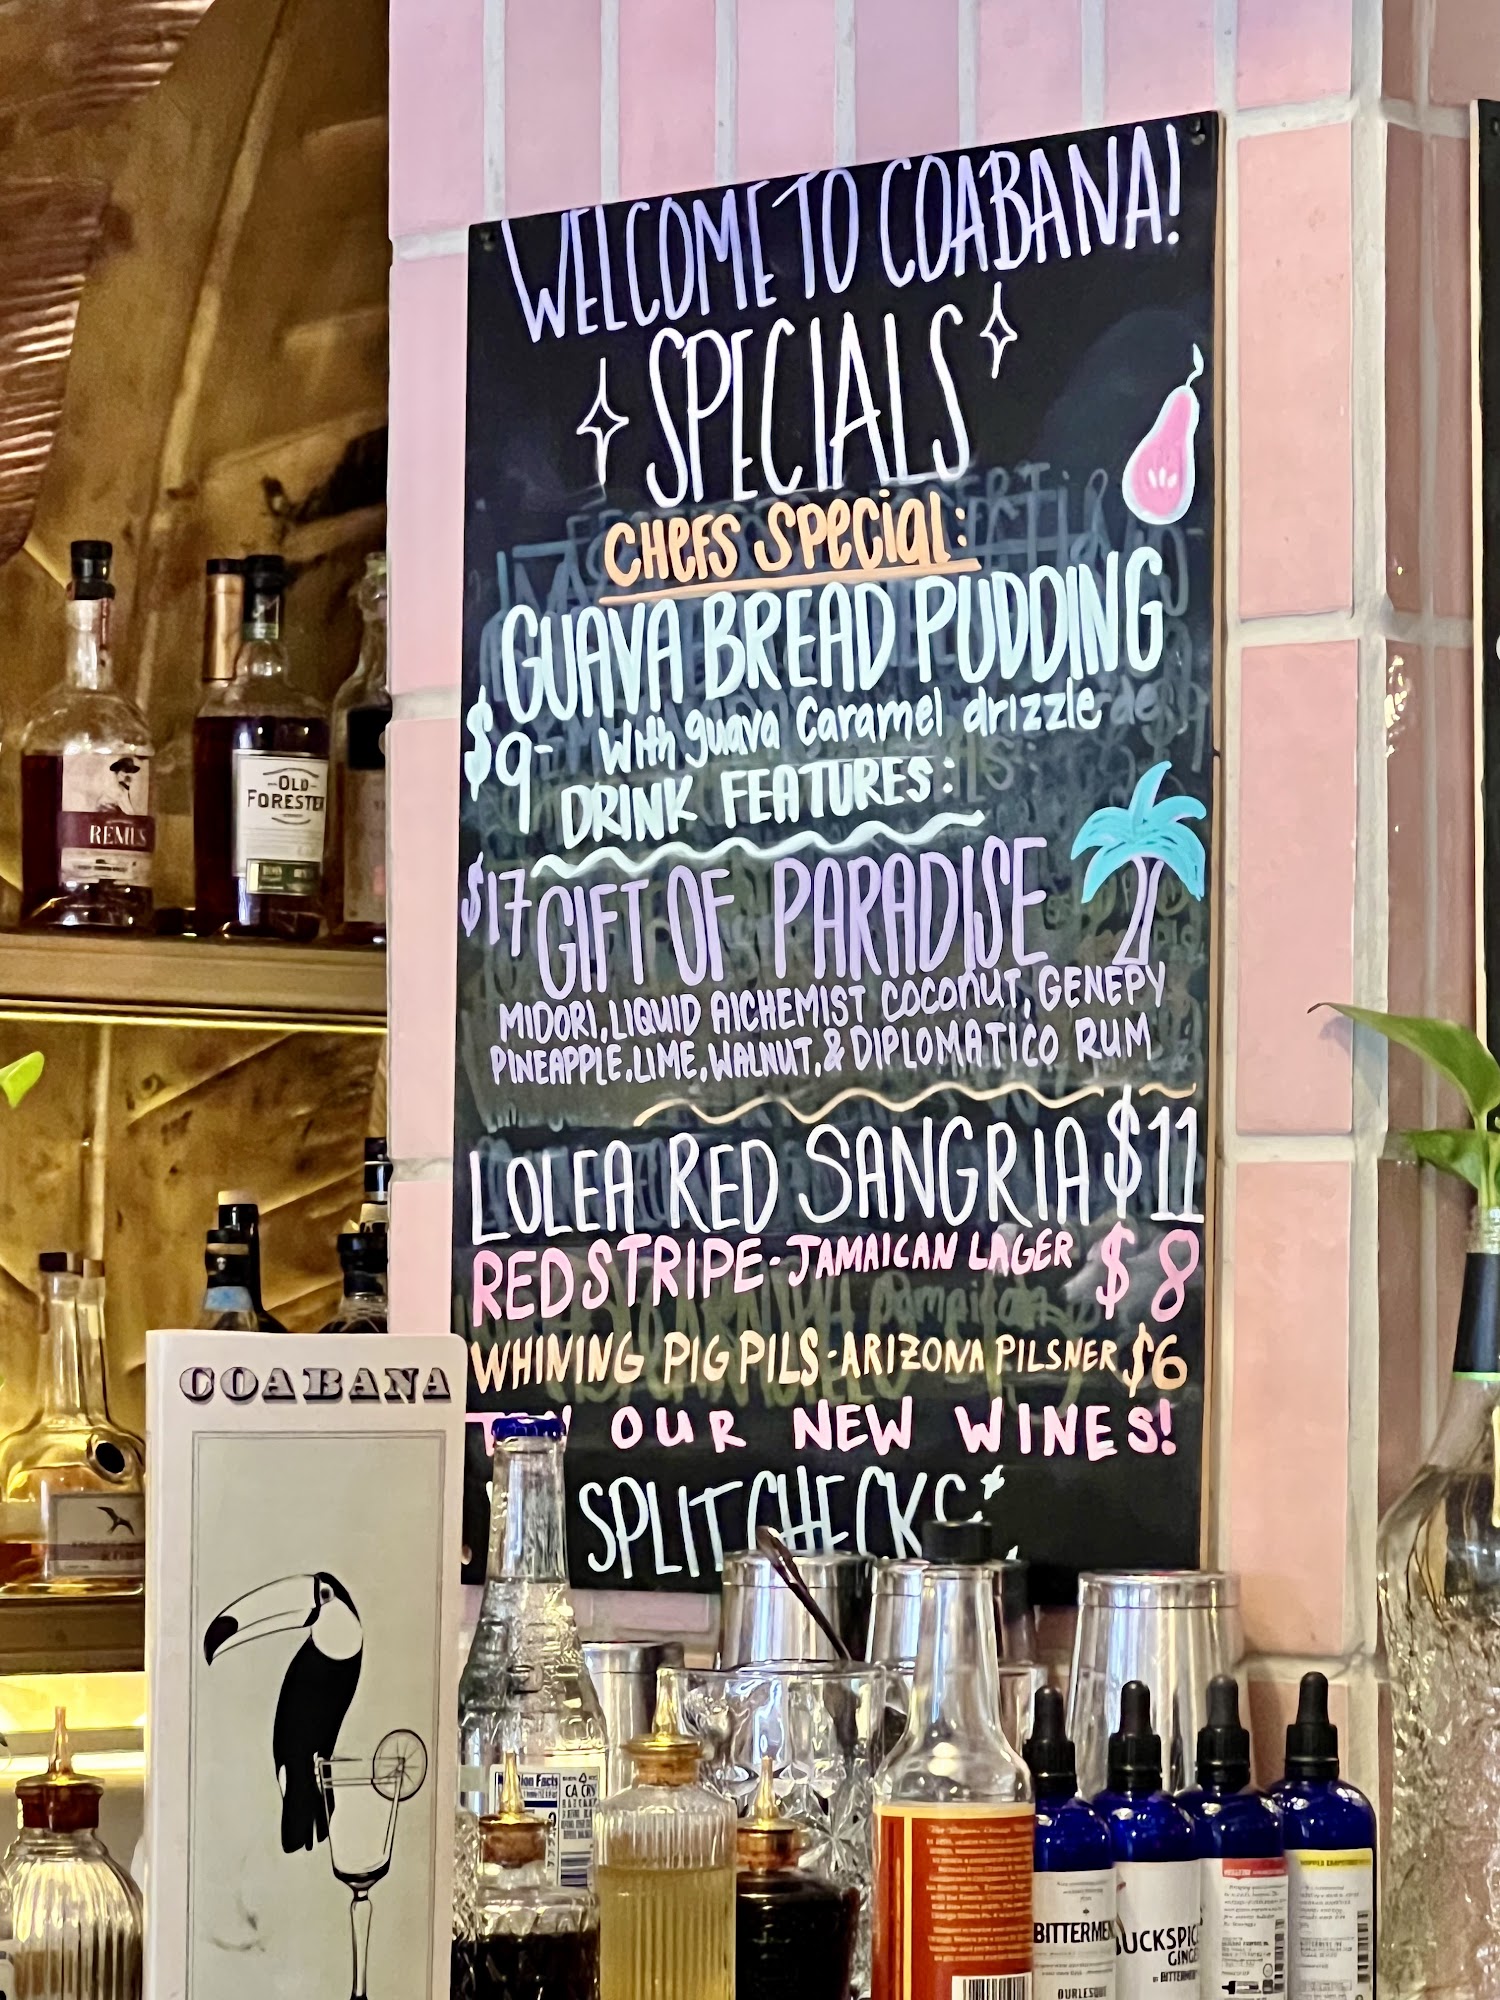 WELCOME TO COABANA!
SPECIALS
CHEFS SPECIAL:
GUAVA BREAD PUDDING
$9- With guava Caramel drizzle
DRINK FEATURES:
$17 GIFT OF PARADISE
MIDORI, LIQUID AlCHEMIST COCONUT, GENEPY
PINEAPPLE, LIME, WALNUT, & DIPLOMATICO RUM
LOLEA RED SANGRIA $11
RED STRIPE - JAMAICAN LAGER $8
WHINING PIG PILS - ARIZONA PILSNER $6
OUR NEW WINES!
SPLIT CHECKS
REMUS
OLD
FORESTER
COABANA
Facts
CA CRV
BITTERMEN
BUCKSPICE
GINGER